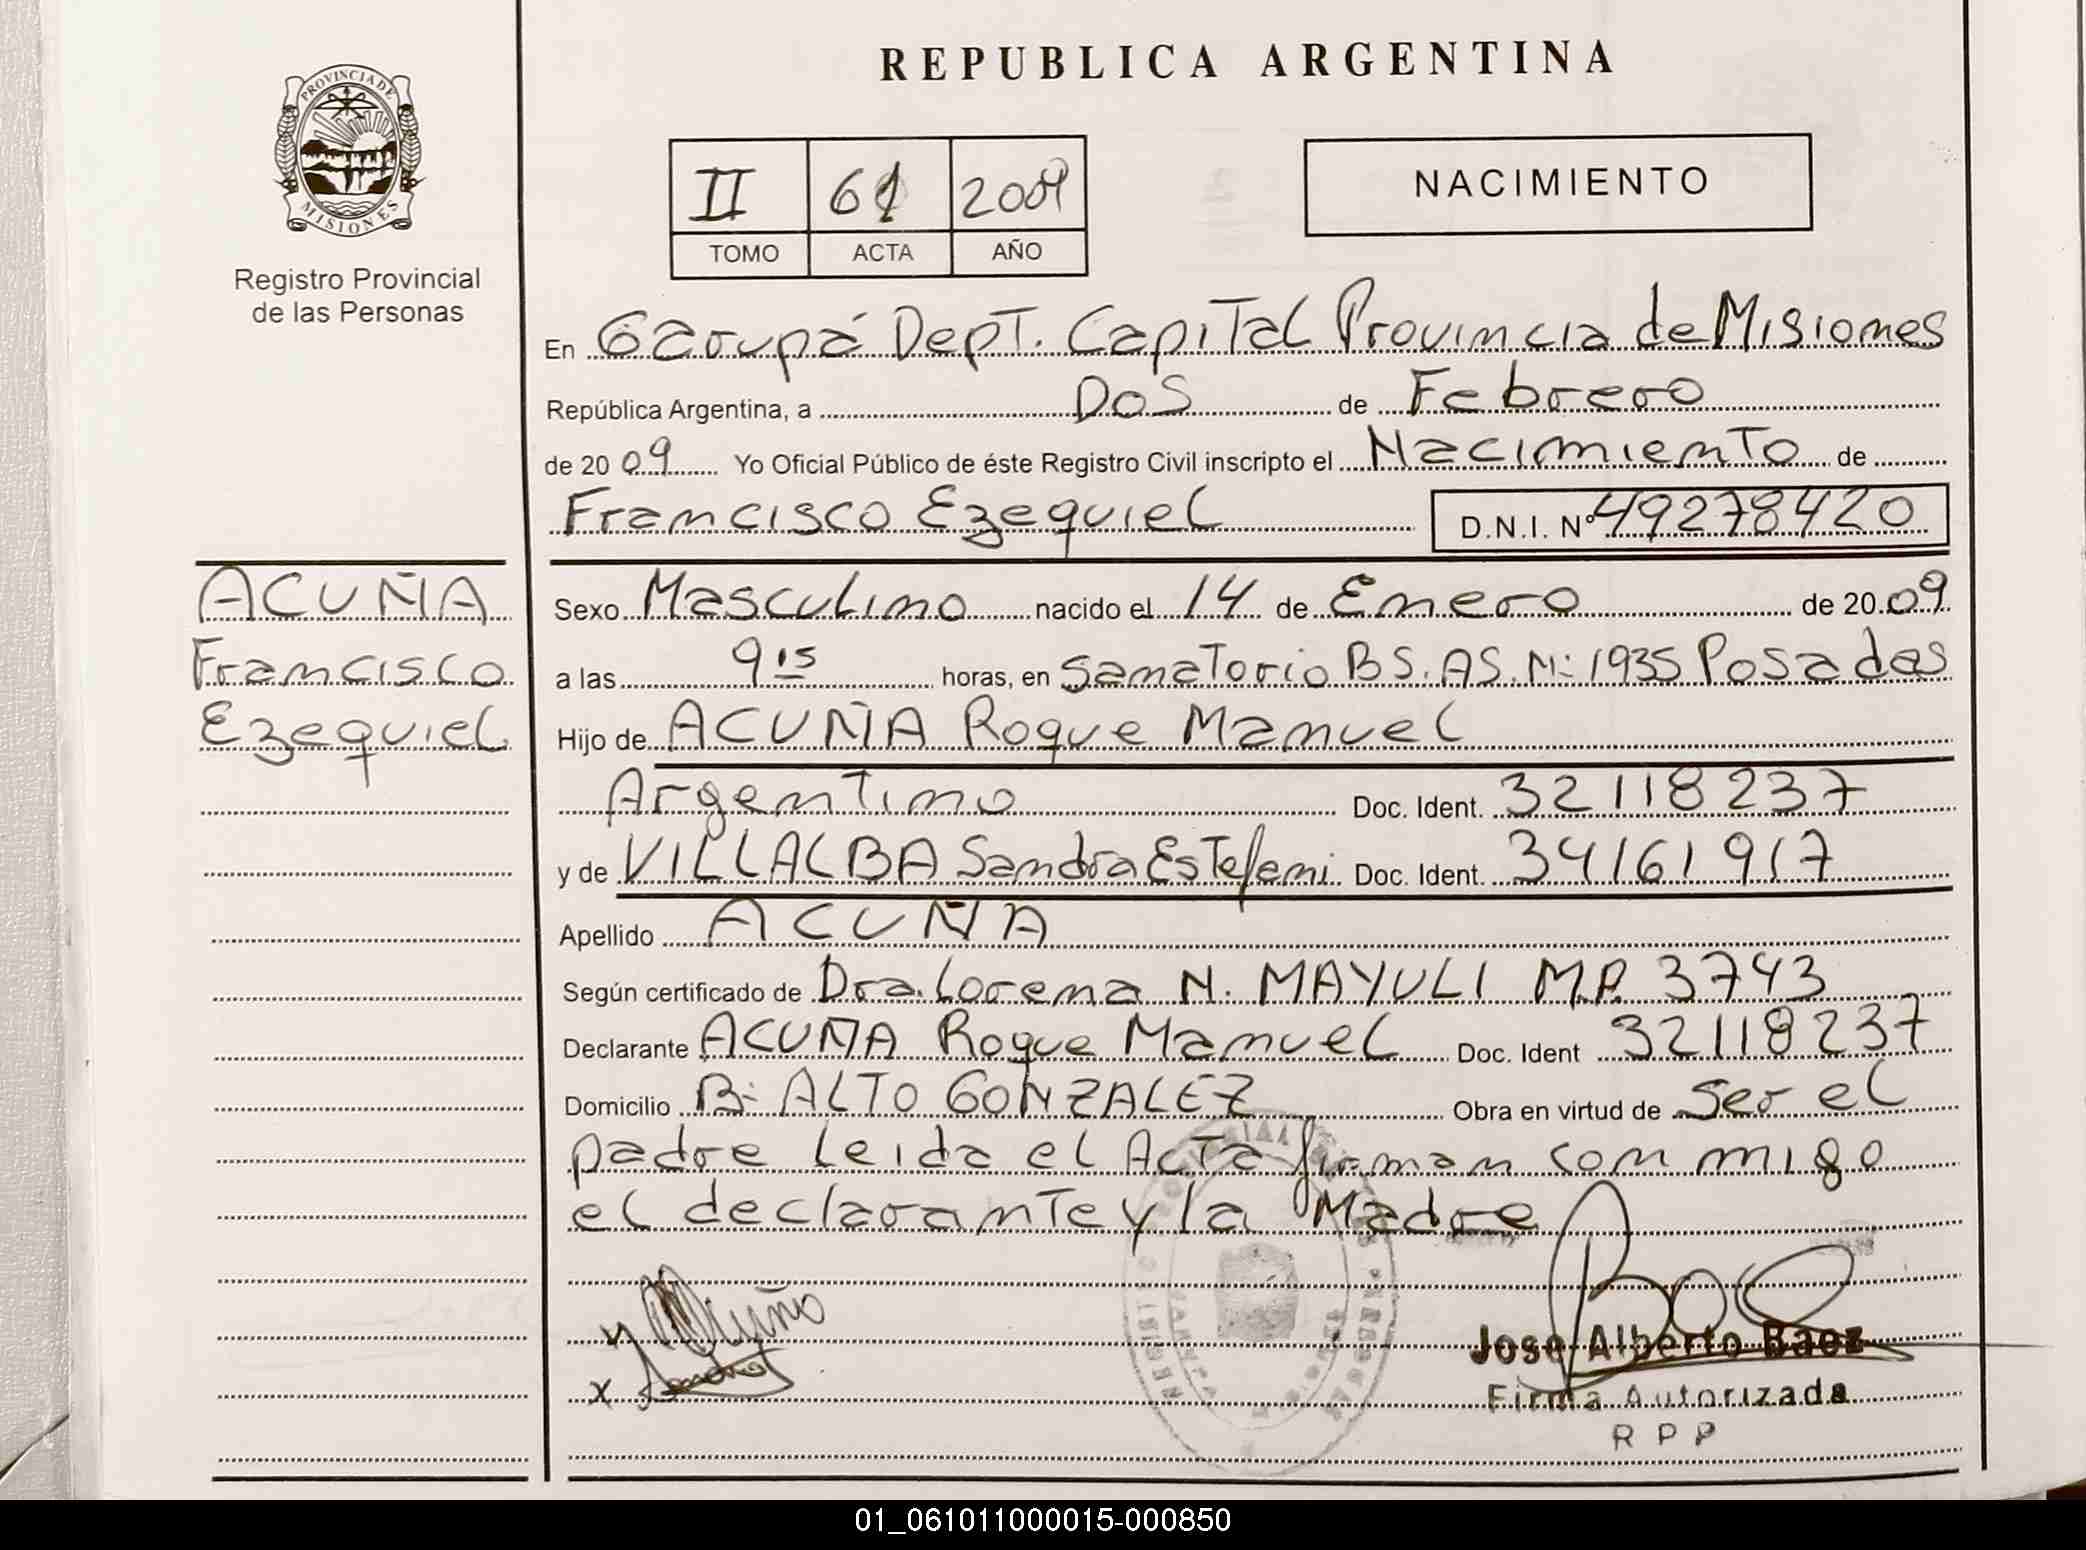 REPUBLICA ARGENTINA
PROVINCIA DE
MISIONES
Registro Provincial
de las Personas
II 61 2009
TOMO ACTA AÑO
NACIMIENTO
En Garupá Dept. Capital Provincia de Misiones
República Argentina, a Dos de Febrero
de 20 09 Yo Oficial Público de éste Registro Civil inscripto el Nacimiento de
Francisco Ezequiel D.N.I. Nº 49278420
ACUÑA
Francisco
Ezequiel
Sexo Masculino nacido el 14 de Enero de 20 09
a las 9 15 horas, en Sanatorio BS. AS. N: 1935 Posadas
Hijo de ACUÑA Roque Manuel
Argentino Doc. Ident. 32118237
y de VILLALBA Sandra Estefani Doc. Ident. 34161917
Apellido ACUÑA
Según certificado de Dra. Lorena N. MAYULI M.P. 3743
Declarante ACUÑA Roque Manuel Doc. Ident 32118237
Domicilio B: ALTO GONZALEZ Obra en virtud de Ser el
padre leida el Acta firman con migo
el declarante y la Madre
Jose Alberto Baez
Firma Autorizada
R P P
01_061011000015-000850